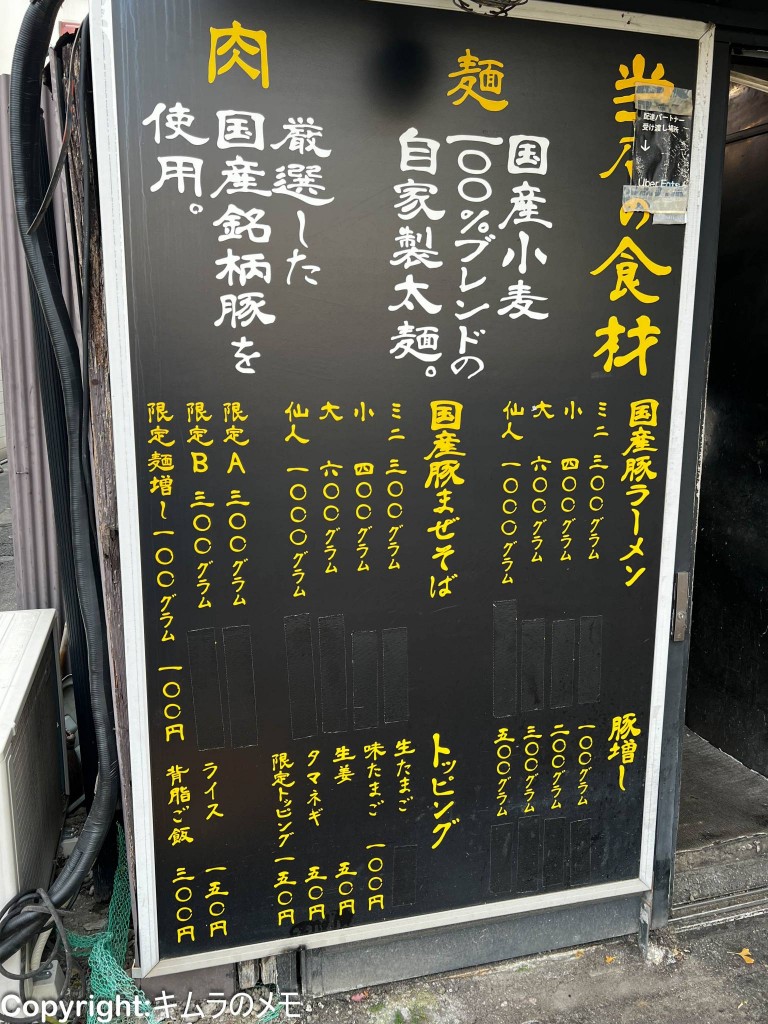 当店の食材
配達パートナー
受け渡し場所
↓
Uber Eats
麺
国産小麦
一〇〇%ブレンドの
自家製太麺。
肉
厳選した
国産銘柄豚を
使用。
国産豚ラーメン
ミニ 三〇〇グラム
小 四〇〇グラム
大 六〇〇グラム
仙人 一〇〇〇グラム
国産豚まぜそば
ミニ 三〇〇グラム
小 四〇〇グラム
大 六〇〇グラム
仙人 一〇〇〇グラム
限定A 三〇〇グラム
限定B 三〇〇グラム
限定麺増し 一〇〇グラム 一〇〇円
豚増し
一〇〇グラム
二〇〇グラム
三〇〇グラム
五〇〇グラム
トッピング
生たまご
味たまご 一〇〇円
生姜 五〇円
タマネギ 五〇円
限定トッピング 一五〇円
ライス 一五〇円
背脂ご飯 三〇〇円
Copyright:キムラのメモ